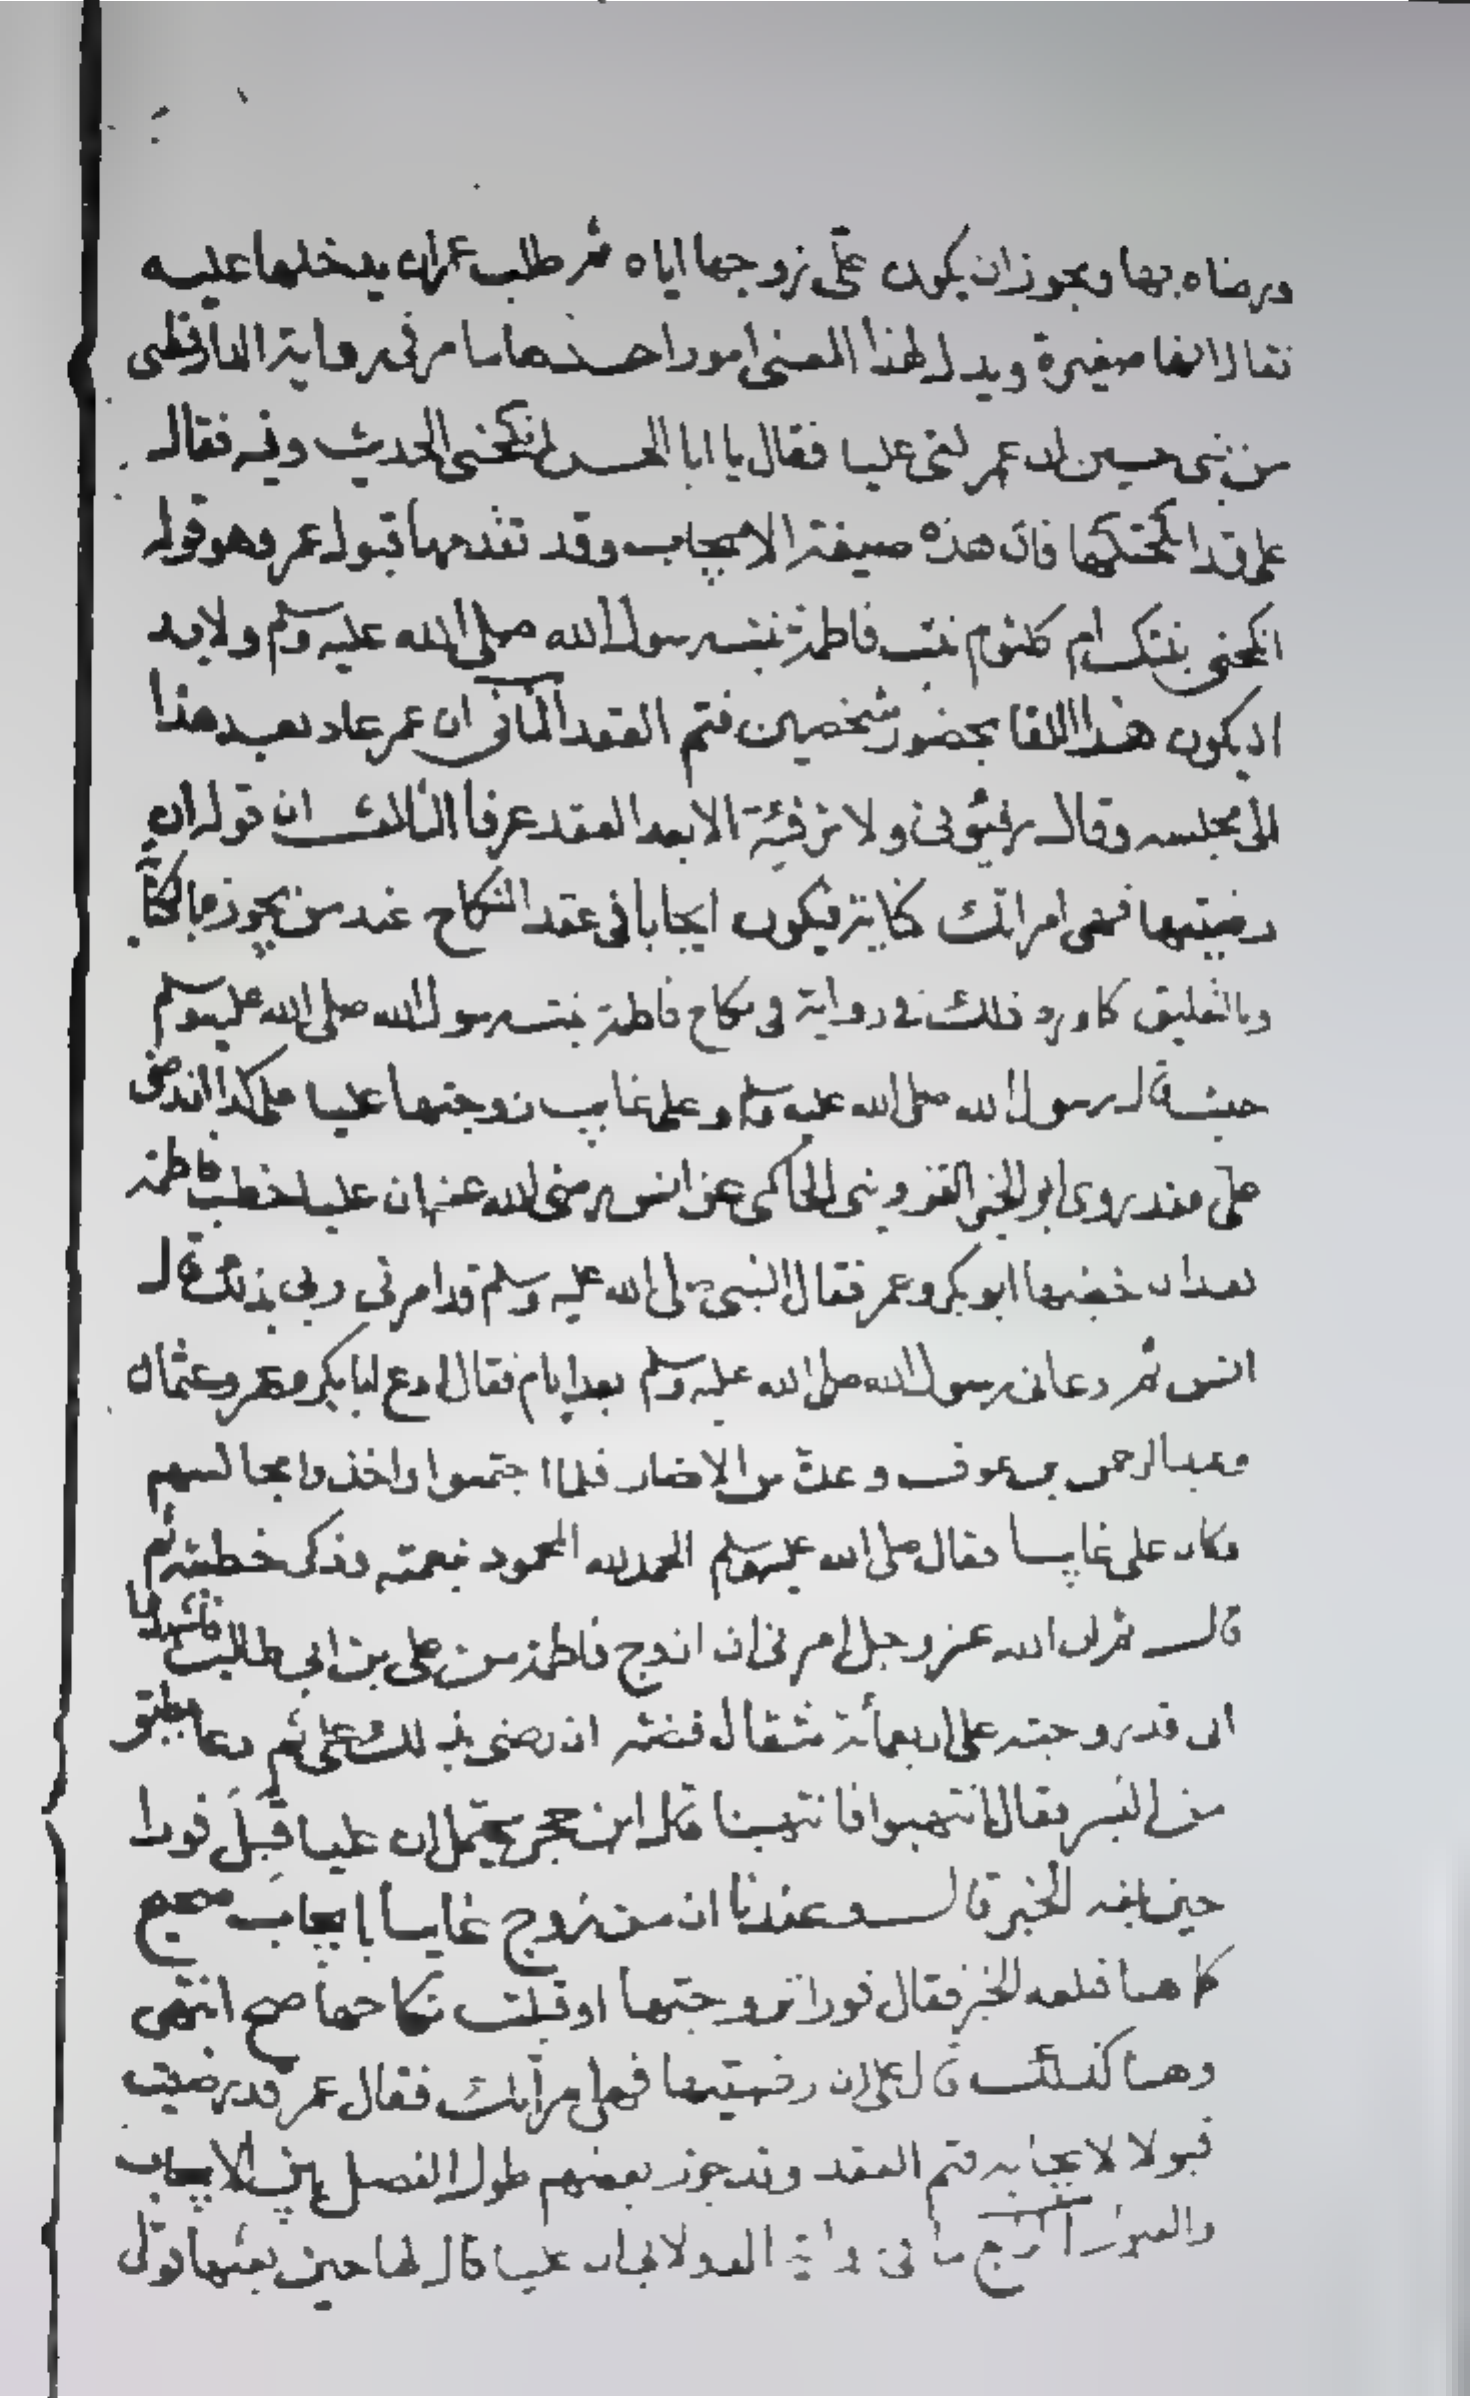 ورضاه بها ويجوز ان يكون على زوجها اياه ثم طلب عمران يدخلها عليه
فقال انها صغيرة ويدل لهذا المعنى امور احدها ما مر في رواية الدارقطني
من بني حسين ان عمر لقي عليا فقال يا ابا الحسن انكحني الحديث وفيه فقال
على قد انكحتكها فان هذه صيغة الايجاب وقد تقدمها قبول عمر وهو قوله
انكحني بنتك ام كلثوم بنت فاطمة بنت رسول الله صلى الله عليه وسلم ولابد
ان يكون هذا اللقا بحضور شخصين فتم العقد الثاني ان عمر عاد بعد هذا
الى مجلسه وقال رفئوني ولا ترفئة الا بعد العقد عرفا الثالث ان قوله ان
رضيتها فهي امراتك كناية فيكون ايجابا في عقد النكاح عند من يجوز بالكنا
وبالتعليق كما ورد ذلك في رواية في نكاح فاطمة بنت رسول الله صلى الله عليه وسلم
حيث قال رسول الله صلى الله عليه وسلم وعلى غايب زوجتها عليا على كذا ان رضي
على فقد روى ابو الخير القزويني الحاكمي عن انس رضي الله عنه ان عليا خطب فاطمة
بعد ان خطبها ابو بكر وعمر فقال النبي صلى الله عليه وسلم قد امرني ربي بذلك قال
انس ثم دعاني رسول الله صلى الله عليه وسلم بعد ايام فقال ادع لي ابا بكر وعمر وعثمان
وعبد الرحمن بن عوف وعدة من الانصار فلما اجتمعوا واخذوا مجالسهم
وكان على غايبا فقال صلى الله عليه وسلم الحمد لله المحمود بنعمته وذكر خطبته ثم
قال ثم ان الله عز وجل امرني ان ازوج فاطمة من على بن ابي طالب فاشهدوا
اني قد زوجته على اربعمأئة مثقال فضة ان رضي بذلك على ثم دعا بطبق
من بسر فقال انتهبوا فانتهبنا قال ابن حجر يحتمل ان عليا قبل فورا
حين بلغه الخبر قال وعندنا ان من زوج غايبا بايجاب صحيح
كما هنا فبلغه الخبر فقال فورا تزوجتها او قبلت نكاحها صح انتهى
وهنا كذلك قال على ان رضيتها فهي امرأتك فقال عمر قد رضيت
قبولا لايجابه فتم العقد وقد جوز بعضهم طول الفصل بين الايجاب
والقبول الرابع ما في رواية الدولابي ان عليا قال لها حين بعثها قولي